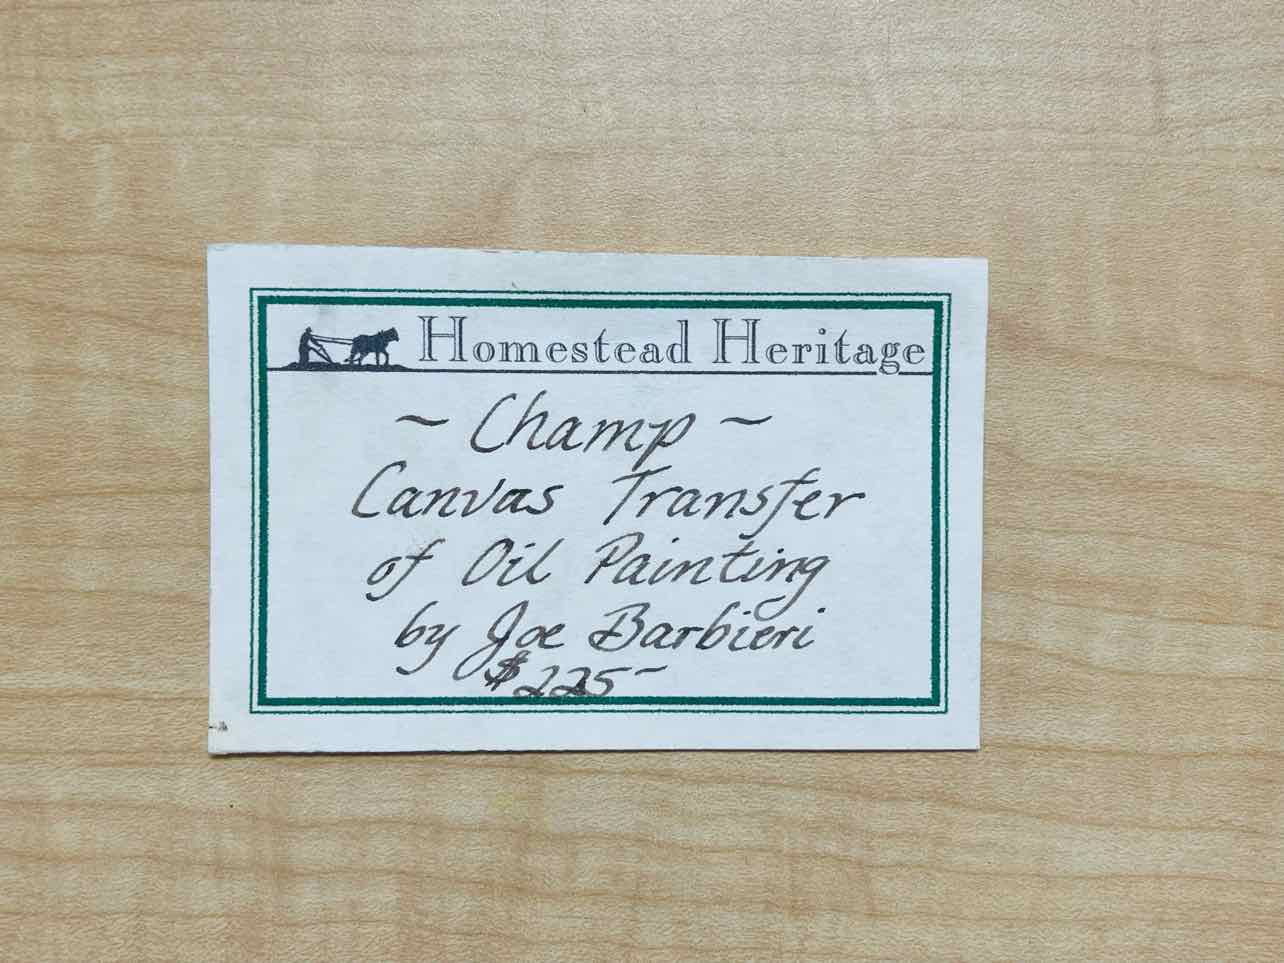 Homestead Heritage
~ Champ ~
Canvas Transfer
of Oil Painting
by Joe Barbieri
$225-